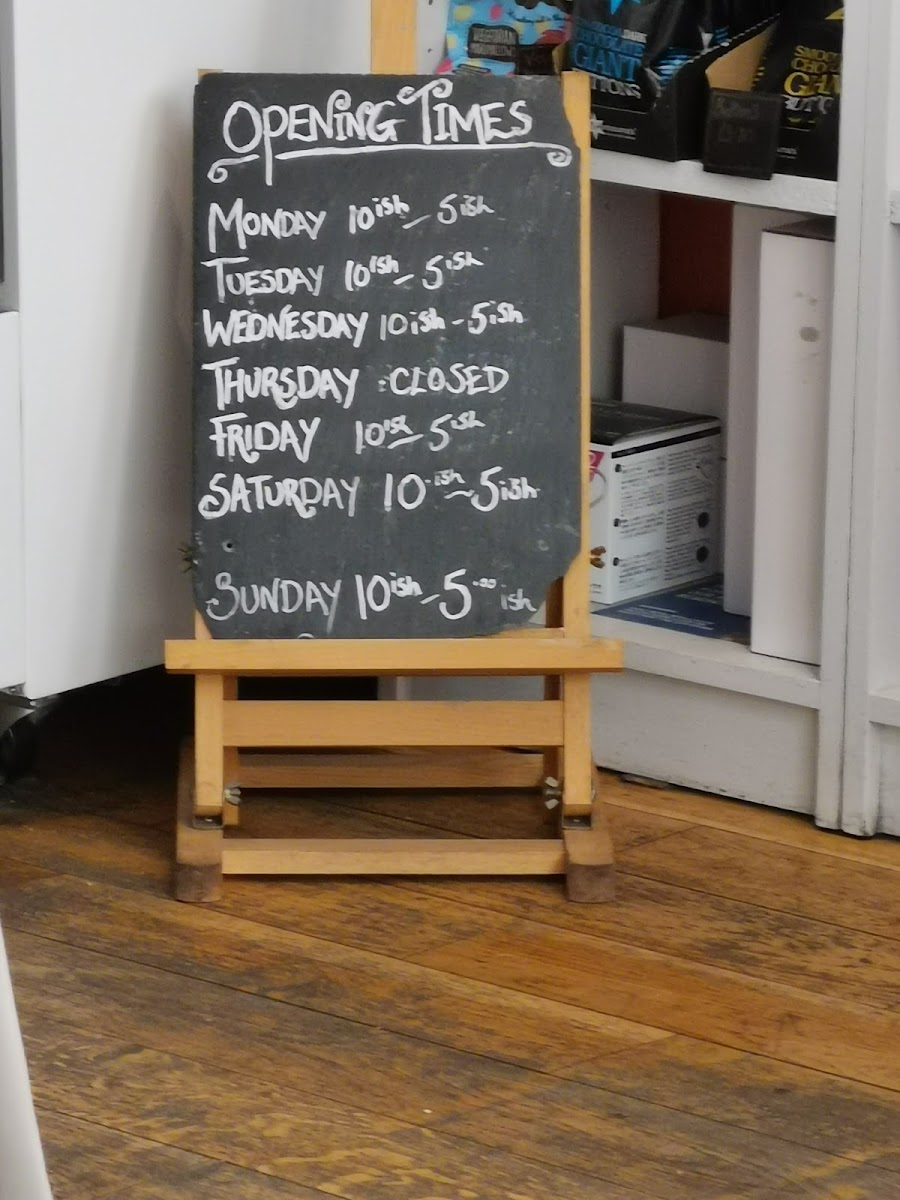 OPENING TIMES
MONDAY 10ish - 5ish
TUESDAY 10ish - 5ish
WEDNESDAY 10ish - 5ish
THURSDAY : CLOSED
FRIDAY 10ish - 5ish
SATURDAY 10-ish - 5ish
SUNDAY 10ish - 5.00 ish
DARK
CHOCOLATE
GIANT
BUTTONS
SMOO
CHOC
GIAN